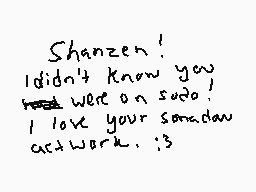 Shanzen!
I didn't know you
were on sudo!
I love your sonadow
artwork. :3